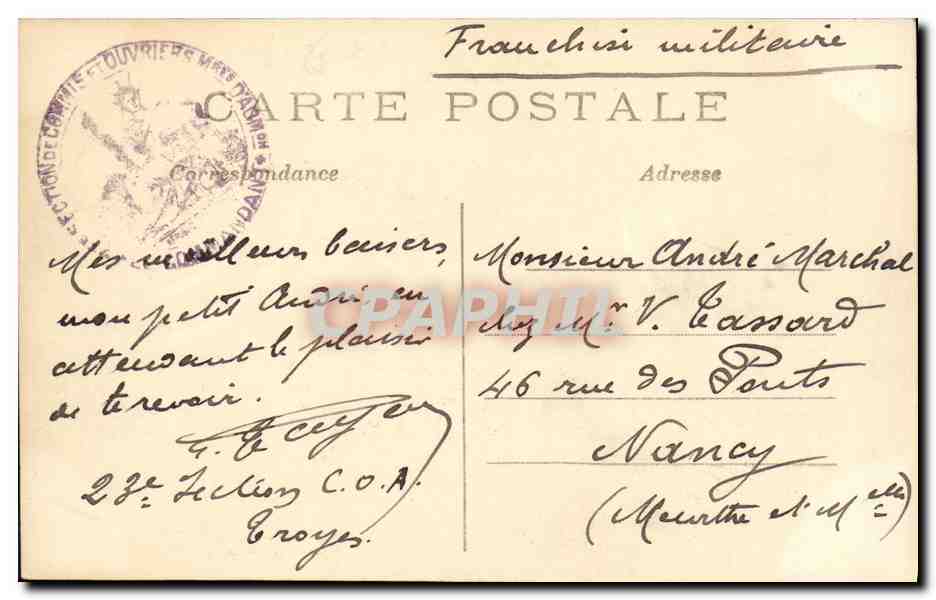 Franchise militaire
SECTION DE COMMIS ET OUVRIERS MRES D'ADMON
COMMANDANT
CARTE POSTALE
Correspondance
Adresse
Mes meilleurs baisers,
mon petit André, en
attendant le plaisir
de te revoir.
23e Section C.O.A.
Troyes.
Monsieur André Marchal
chez Mr V. Tassard
46 rue des Ponts
Nancy
(Meurthe et Melle)
CPAPHIL